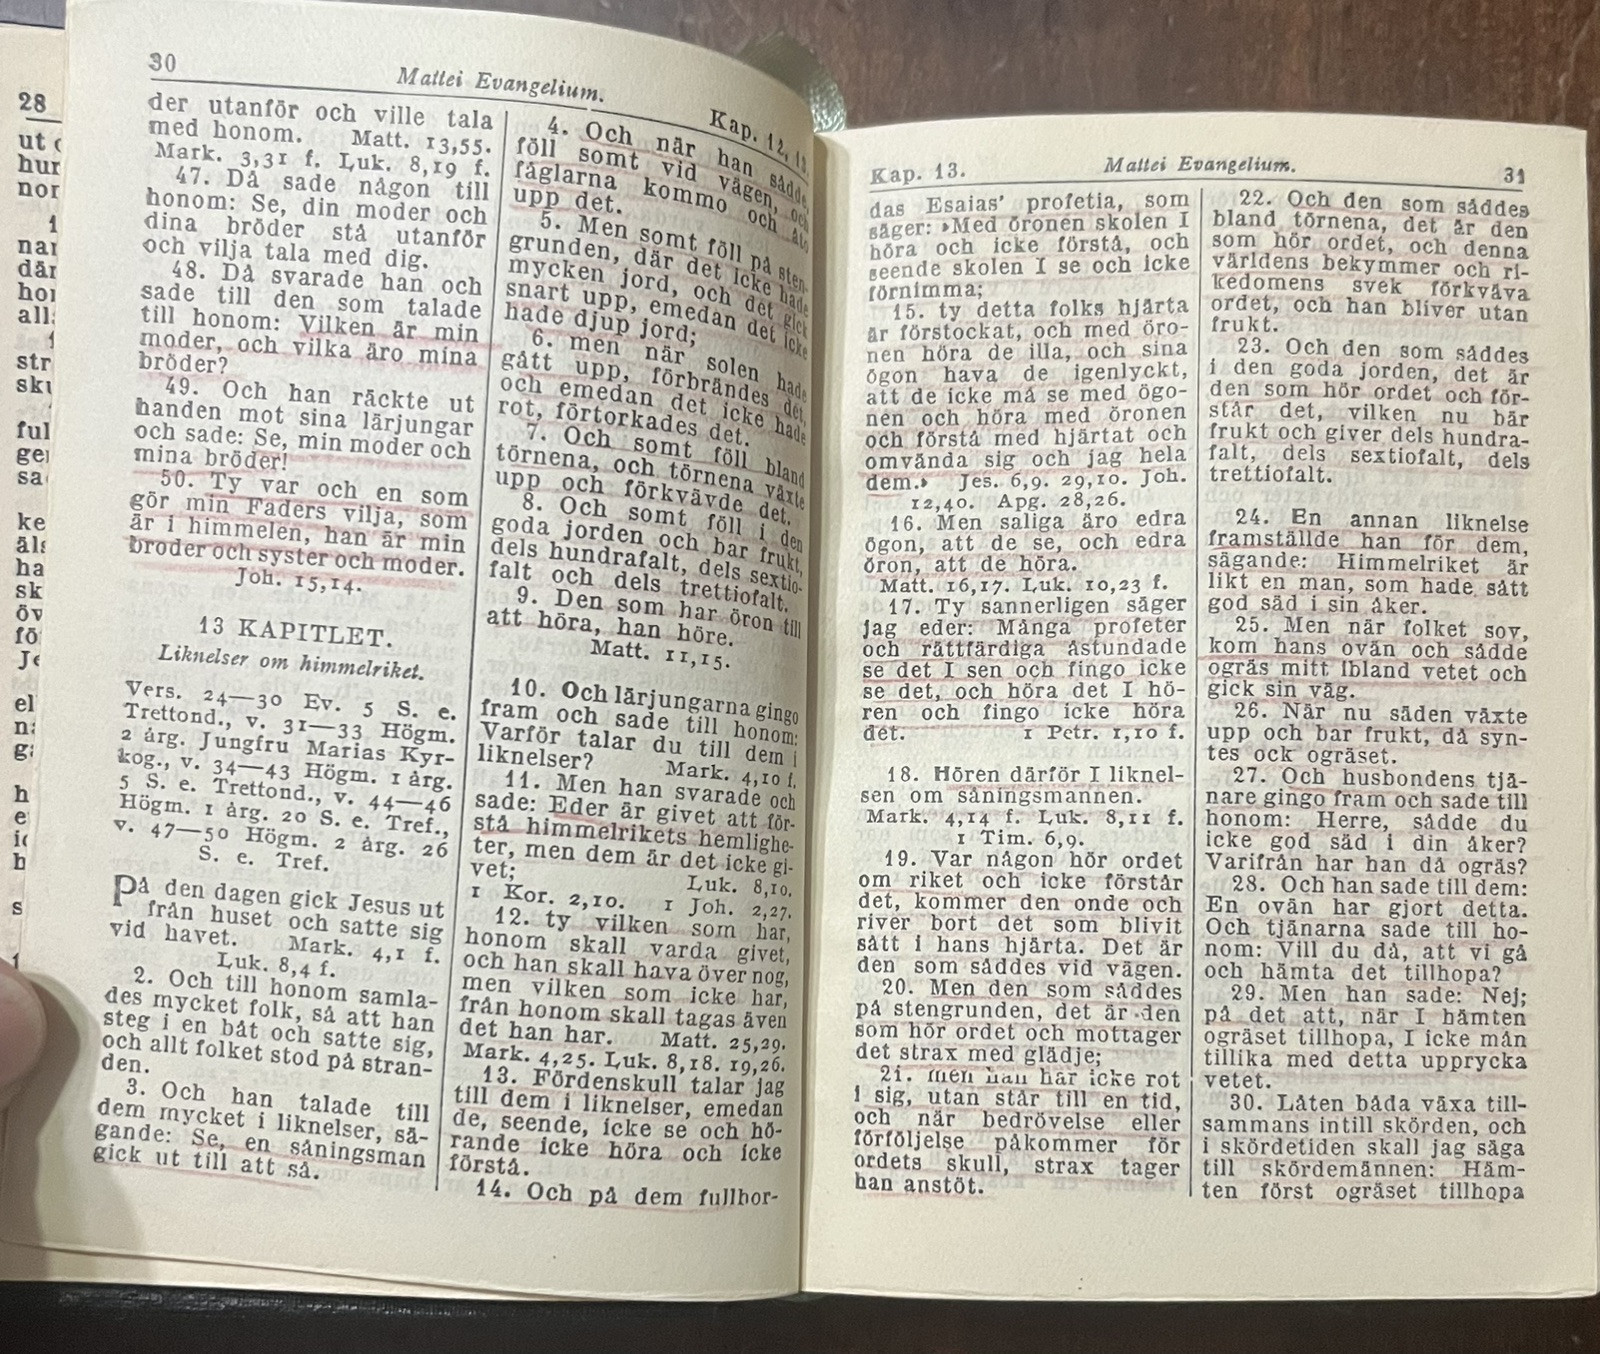 28
ut
hur
nor
1
nar
där
hor
all
str
sku
ful
ger
sa
ke
äls
ha
sk
öv
fö
Je
el
nä
ga
h
e
b
s
30
Mattei Evangelium.
Kap. 12, 13.
der utanför och ville tala
med honom. Matt. 13,55.
Mark. 3,31 f. Luk. 8,19 f.
47. Då sade någon till
honom: Se, din moder och
dina bröder stå utanför
och vilja tala med dig.
48. Då svarade han och
sade till den som talade
till honom: Vilken är min
moder, och vilka äro mina
bröder?
49. Och han räckte ut
handen mot sina lärjungar
och sade: Se, min moder och
mina bröder!
50. Ty var och en som
gör min Faders vilja, som
är i himmelen, han är min
broder och syster och moder.
Joh. 15,14.
13 KAPITLET.
Liknelser om himmelriket.
Vers. 24—30 Ev. 5 S. e.
Trettond., v. 31—33 Högm.
2 årg. Jungfru Marias Kyr-
kog., v. 34—43 Högm. 1 årg.
5 S. e. Trettond., v. 44—46
Högm. 1 årg. 20 S. e. Tref.,
v. 47—50 Högm. 2 årg. 26
S. e. Tref.
På den dagen gick Jesus ut
från huset och satte sig
vid havet. Mark. 4,1 f.
Luk. 8,4 f.
2. Och till honom samla-
des mycket folk, så att han
steg i en båt och satte sig,
och allt folket stod på stran-
den.
3. Och han talade till
dem mycket i liknelser, sä-
gande: Se, en såningsman
gick ut till att så.
4. Och när han sådde,
föll somt vid vägen, och
fåglarna kommo och åto
upp det.
5. Men somt föll på sten-
grunden, där det icke hade
mycken jord, och det gick
snart upp, emedan det icke
hade djup jord;
6. men när solen hade
gått upp, förbrändes det,
och emedan det icke hade
rot, förtorkades det.
7. Och somt föll bland
törnena, och törnena växte
upp och förkvävde det.
8. Och somt föll i den
goda jorden och bar frukt,
dels hundrafalt, dels sextio-
falt och dels trettiofalt.
9. Den som har öron till
att höra, han höre.
Matt. 11,15.
10. Och lärjungarna gingo
fram och sade till honom:
Varför talar du till dem i
liknelser? Mark. 4,10 f.
11. Men han svarade och
sade: Eder är givet att för-
stå himmelrikets hemlighe-
ter, men dem är det icke gi-
vet; Luk. 8,10.
1 Kor. 2,10. 1 Joh. 2,27.
12. ty vilken som har,
honom skall varda givet,
och han skall hava över nog,
men vilken som icke har,
från honom skall tagas även
det han har. Matt. 25,29.
Mark. 4,25. Luk. 8,18. 19,26.
13. Fördenskull talar jag
till dem i liknelser, emedan
de, seende, icke se och hö-
rande icke höra och icke
förstå.
14. Och på dem fullbor-
Kap. 13.
Mattei Evangelium.
31
das Esaias' profetia, som
säger: »Med öronen skolen I
höra och icke förstå, och
seende skolen I se och icke
förnimma;
15. ty detta folks hjärta
är förstockat, och med öro-
nen höra de illa, och sina
ögon hava de igenlyckt,
att de icke må se med ögo-
nen och höra med öronen
och förstå med hjärtat och
omvända sig och jag hela
dem.» Jes. 6,9. 29,10. Joh.
12,40. Apg. 28,26.
16. Men saliga äro edra
ögon, att de se, och edra
öron, att de höra.
Matt. 16,17. Luk. 10,23 f.
17. Ty sannerligen säger
jag eder: Många profeter
och rättfärdiga åstundade
se det I sen och fingo icke
se det, och höra det I hö-
ren och fingo icke höra
det. 1 Petr. 1,10 f.
18. Hören därför I liknel-
sen om såningsmannen.
Mark. 4,14 f. Luk. 8,11 f.
1 Tim. 6,9.
19. Var någon hör ordet
om riket och icke förstår
det, kommer den onde och
river bort det som blivit
sått i hans hjärta. Det är
den som såddes vid vägen.
20. Men den som såddes
på stengrunden, det är den
som hör ordet och mottager
det strax med glädje;
21. men han har icke rot
i sig, utan står till en tid,
och när bedrövelse eller
förföljelse påkommer för
ordets skull, strax tager
han anstöt.
22. Och den som såddes
bland törnena, det är den
som hör ordet, och denna
världens bekymmer och ri-
kedomens svek förkväva
ordet, och han bliver utan
frukt.
23. Och den som såddes
i den goda jorden, det är
den som hör ordet och för-
står det, vilken nu bär
frukt och giver dels hundra-
falt, dels sextiofalt, dels
trettiofalt.
24. En annan liknelse
framställde han för dem,
sägande: Himmelriket är
likt en man, som hade sått
god säd i sin åker.
25. Men när folket sov,
kom hans ovän och sådde
ogräs mitt ibland vetet och
gick sin väg.
26. När nu säden växte
upp och bar frukt, då syn-
tes ock ogräset.
27. Och husbondens tjä-
nare gingo fram och sade till
honom: Herre, sådde du
icke god säd i din åker?
Varifrån har han då ogräs?
28. Och han sade till dem:
En ovän har gjort detta.
Och tjänarna sade till ho-
nom: Vill du då, att vi gå
och hämta det tillhopa?
29. Men han sade: Nej;
på det att, när I hämten
ogräset tillhopa, I icke mån
tillika med detta upprycka
vetet.
30. Låten båda växa till-
sammans intill skörden, och
i skördetiden skall jag säga
till skördemännen: Häm-
ten först ogräset tillhopa